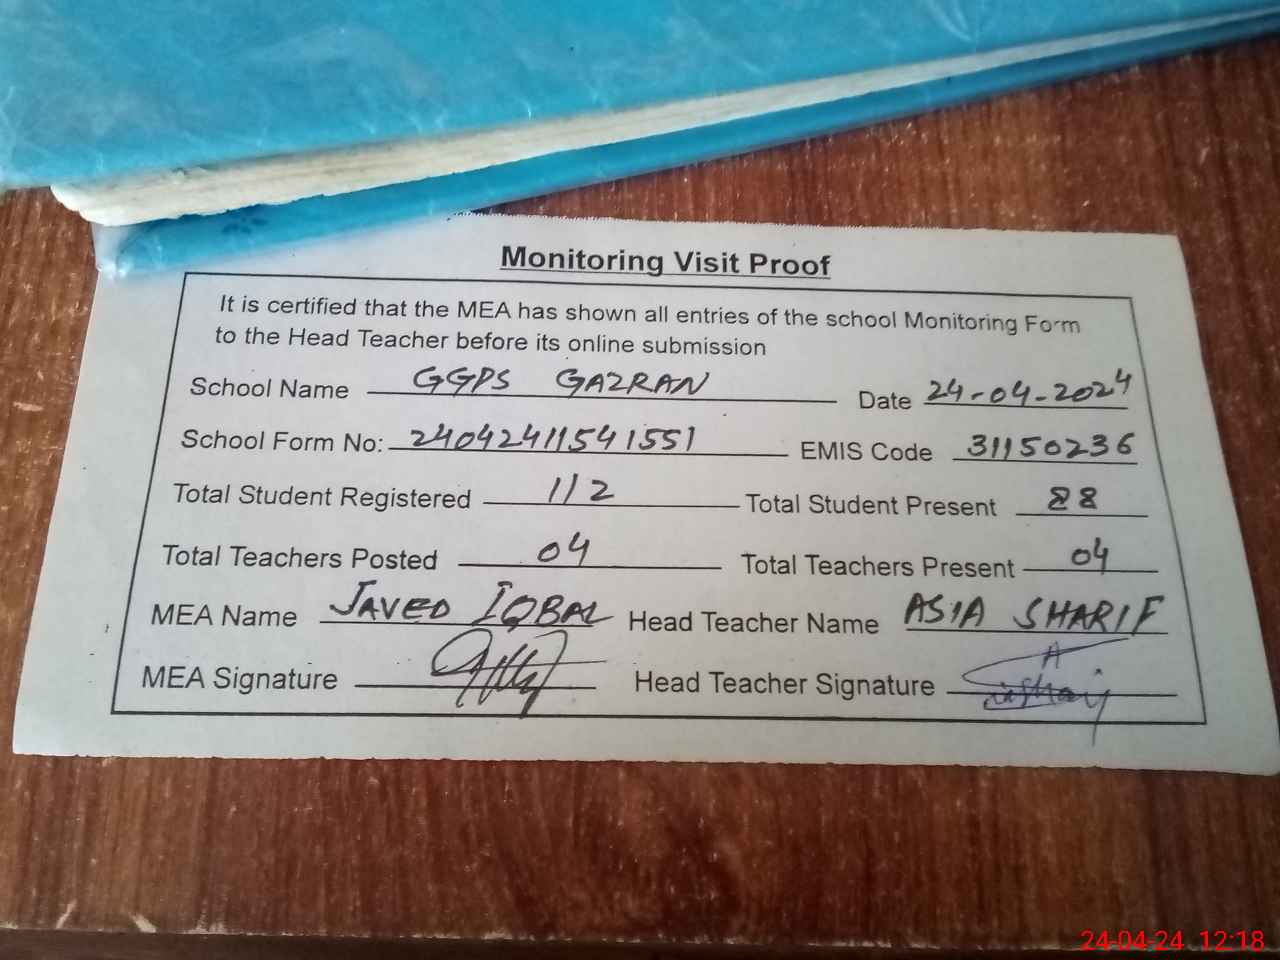 Monitoring Visit Proof
It is certified that the MEA has shown all entries of the school Monitoring Form
to the Head Teacher before its online submission
School Name GGPS GAZRAN Date 24-04-2024
School Form No: 24042411541551 EMIS Code 31150236
Total Student Registered 112 Total Student Present 88
Total Teachers Posted 04 Total Teachers Present 04
MEA Name JAVED IQBAL Head Teacher Name ASIA SHARIF
MEA Signature Head Teacher Signature
24-04-24 12:18